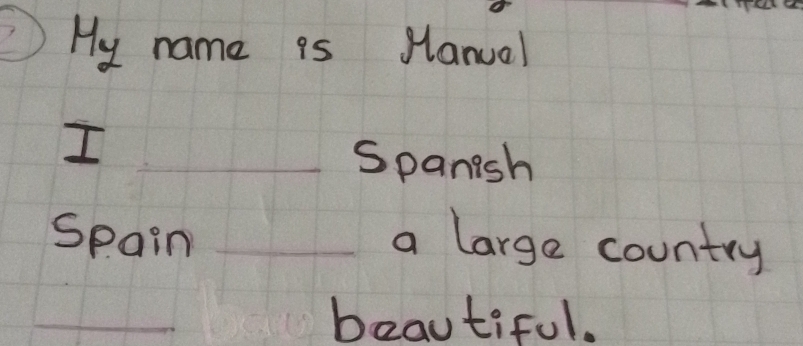 My name is Manual
I ______ Spanish
Spain ____ a large country
____ beautiful.